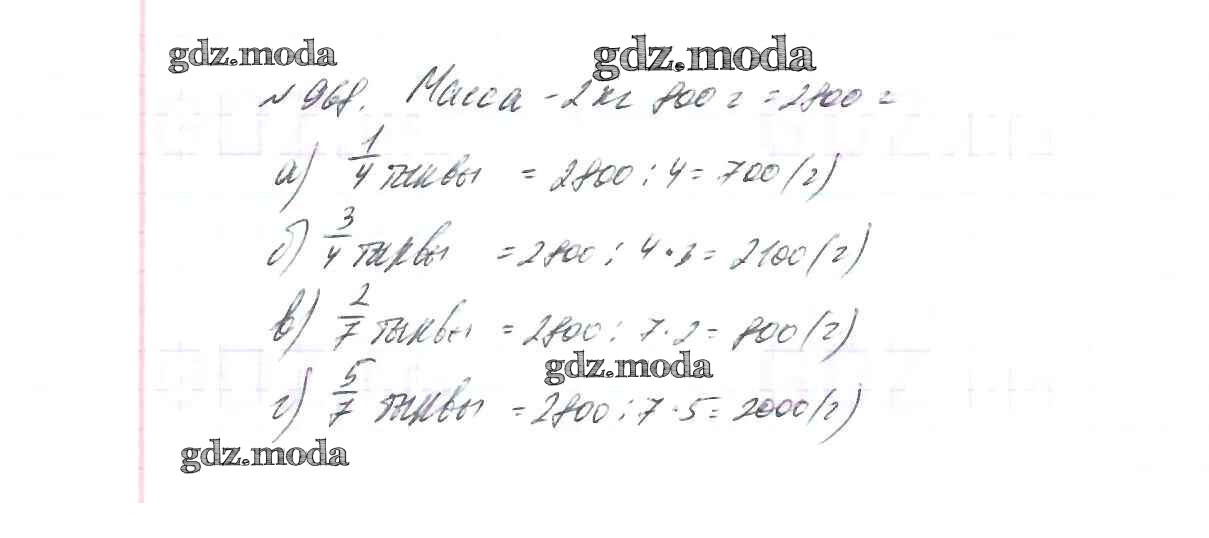 gdz.moda gdz.moda
№ 968. Масса - 2 кг 800 г = 2800 г
а) 1/4 тыквы = 2800 : 4 = 700 (г)
б) 3/4 тыквы = 2800 : 4 · 3 = 2100 (г)
в) 2/7 тыквы = 2800 : 7 · 2 = 800 (г)
gdz.moda
г) 5/7 тыквы = 2800 : 7 · 5 = 2000 (г)
gdz.moda